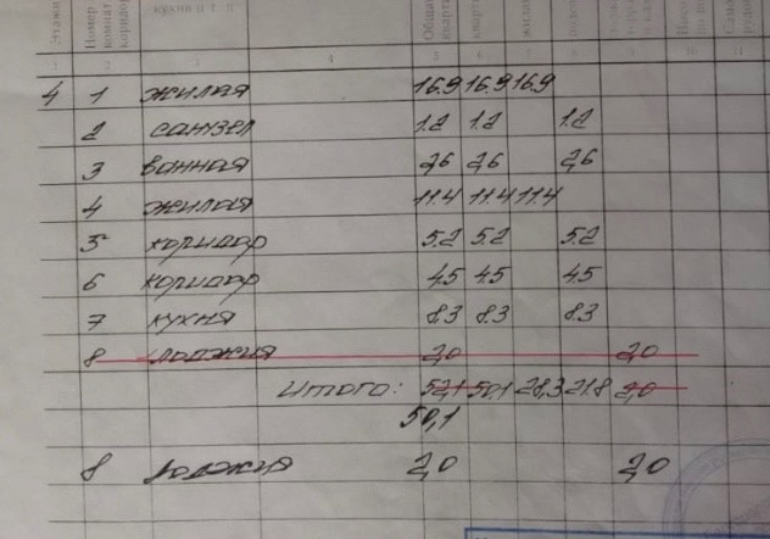 Этажи Номер комнат коридор кухни и т. п. Общая кварти кварт жилая
1 2 3 4 5 6 7 8 9 10 11
4 1 жилая 16.9 16.9 16.9
2 санузел 1.2 1.2 1.2
3 ванная 2,6 2,6 2,6
4 жилая 11.4 11.4 11.4
5 коридор 5.2 5.2 5.2
6 коридор 4.5 4.5 4.5
7 кухня 8.3 8.3 8.3
8 лоджия 2,0 2,0
Итого: 52,1 50,1 28,3 21.8 2,0
50,1
8 лоджия 2,0 2,0